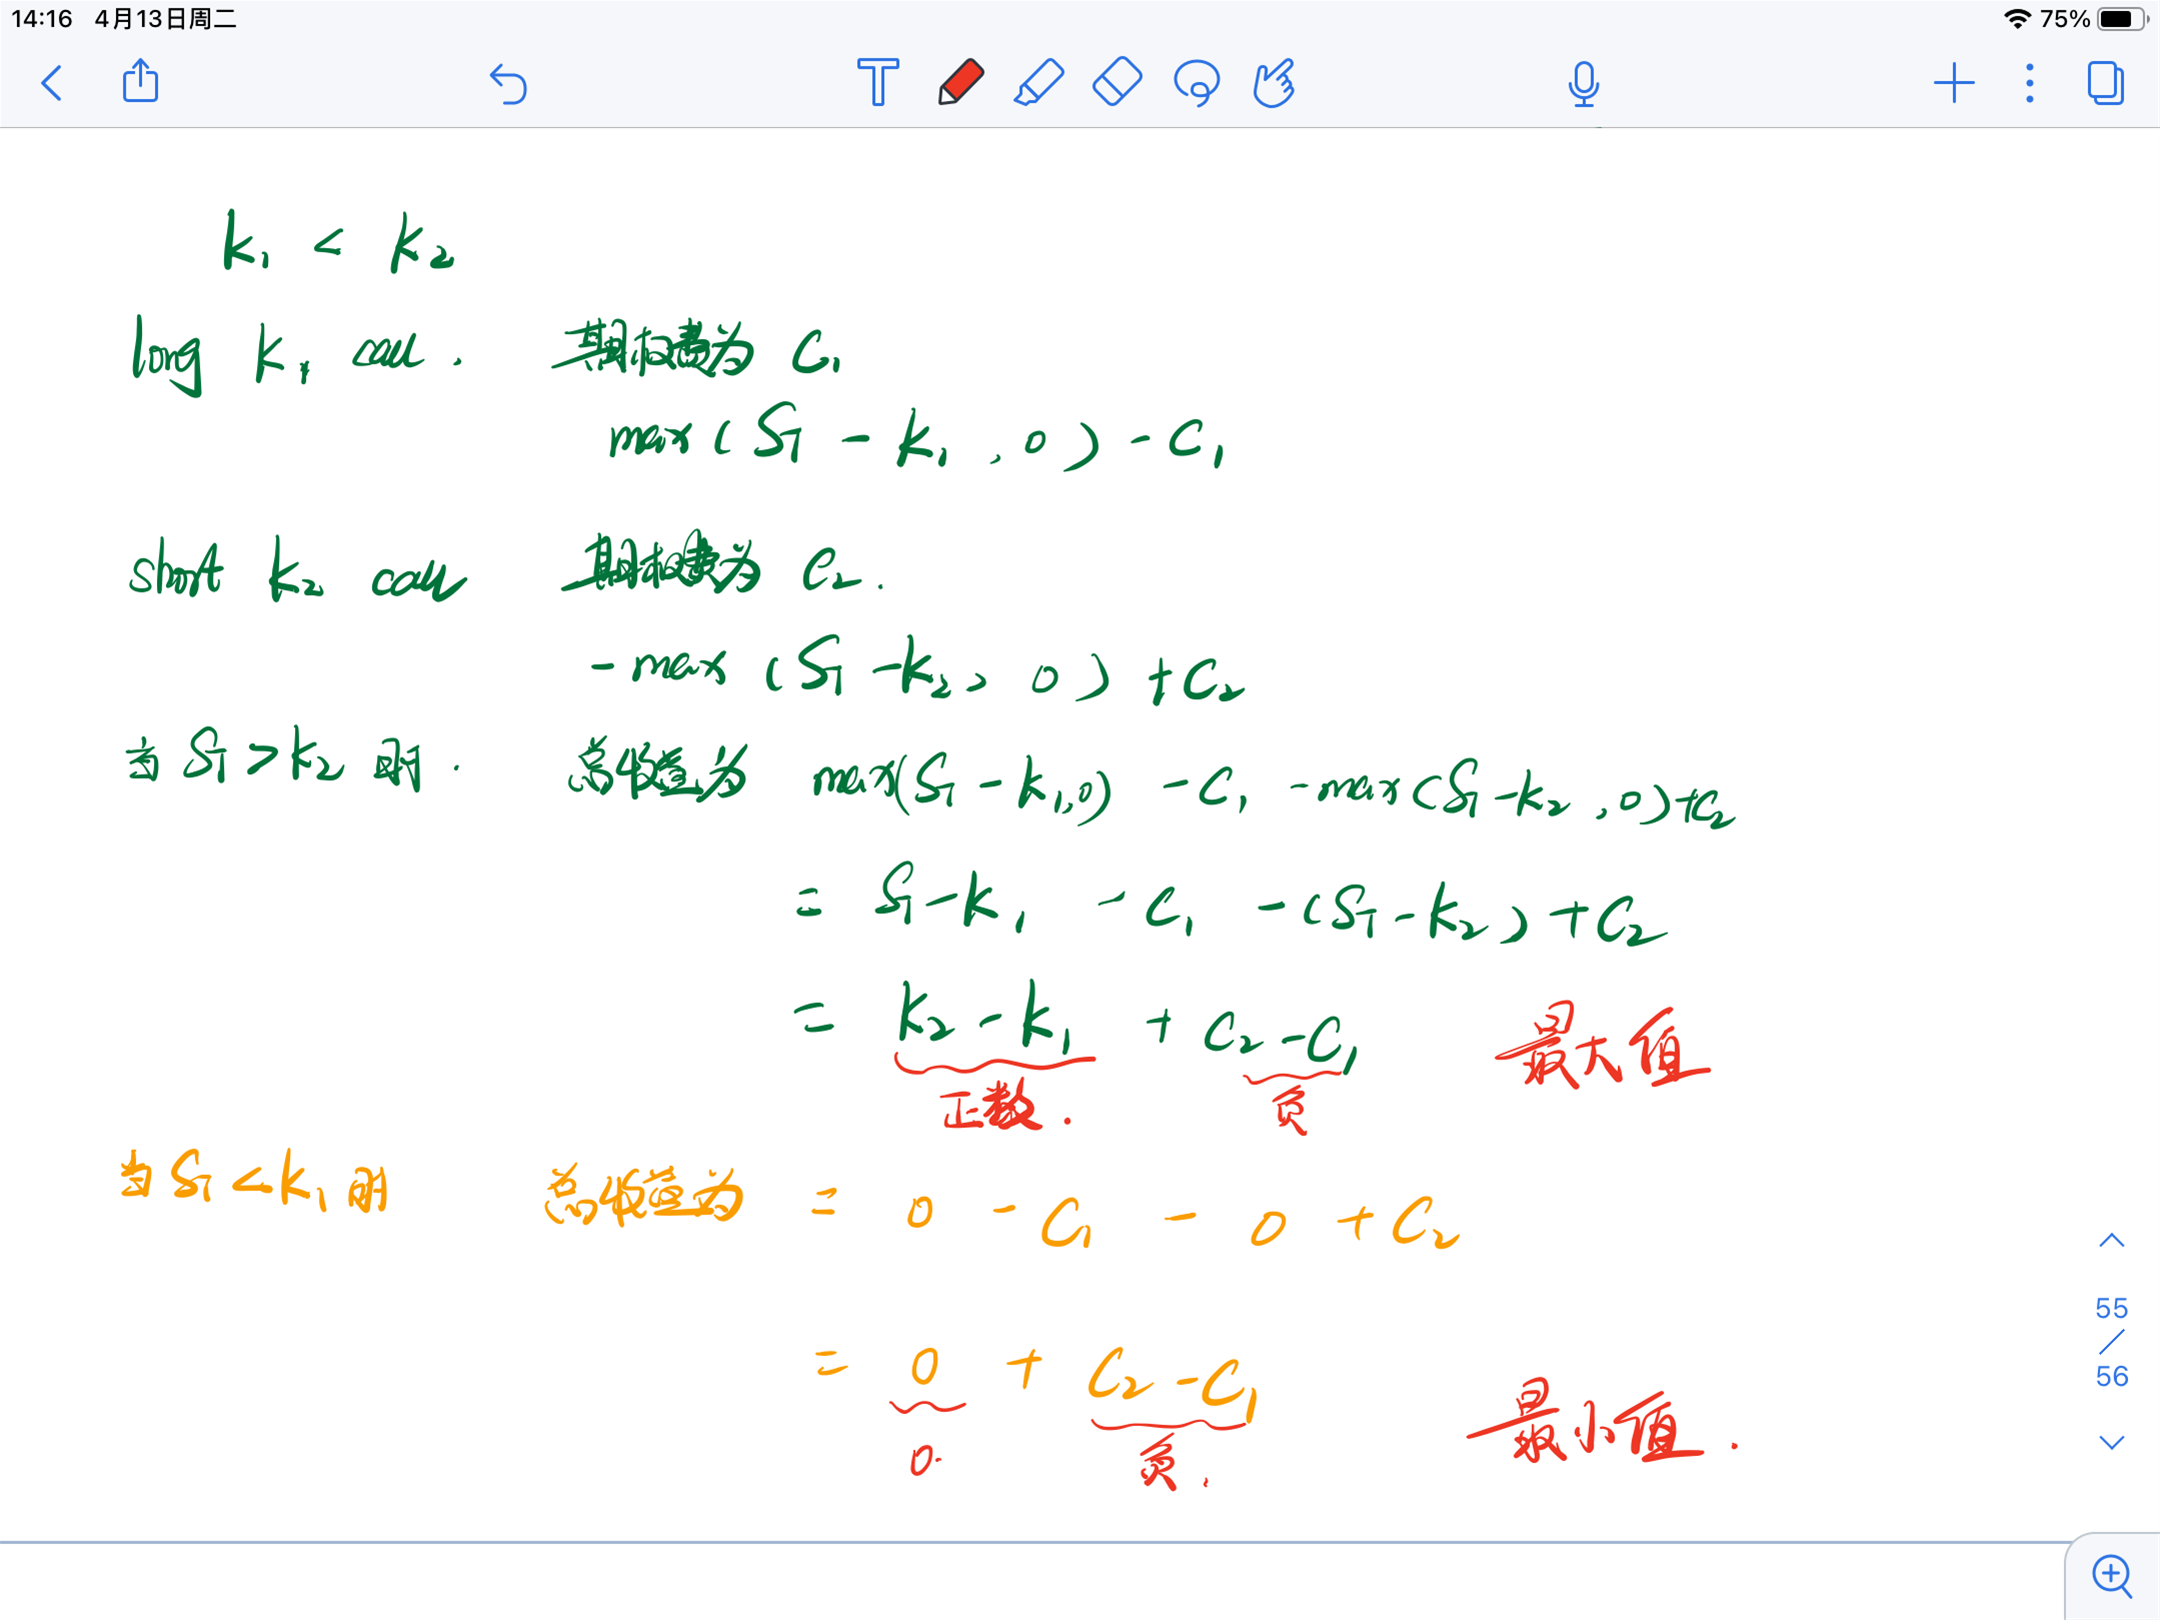 14:16 4月13日周二 75%
T
k₁ < k₂
long k₁ call. 期权费为 C₁
max(S_T - k₁, 0) - C₁
short k₂ call 期权费为 C₂.
-max(S_T - k₂, 0) + C₂
当 S_T > k₂ 时. 总收益为 max(S_T - k₁,0) - C₁ - max(S_T - k₂, 0) + C₂
= S_T - k₁ - C₁ - (S_T - k₂) + C₂
= k₂ - k₁ + C₂ - C₁ 最大值
正数. 负
当 S_T < k₁ 时 总收益为 = 0 - C₁ - 0 + C₂
= 0 + C₂ - C₁ 最小值.
0. 负.
55
/
56